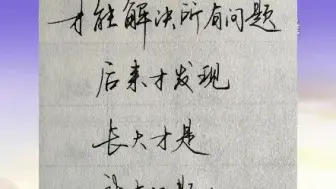 才能解决所有问题
后来才发现
长大才是